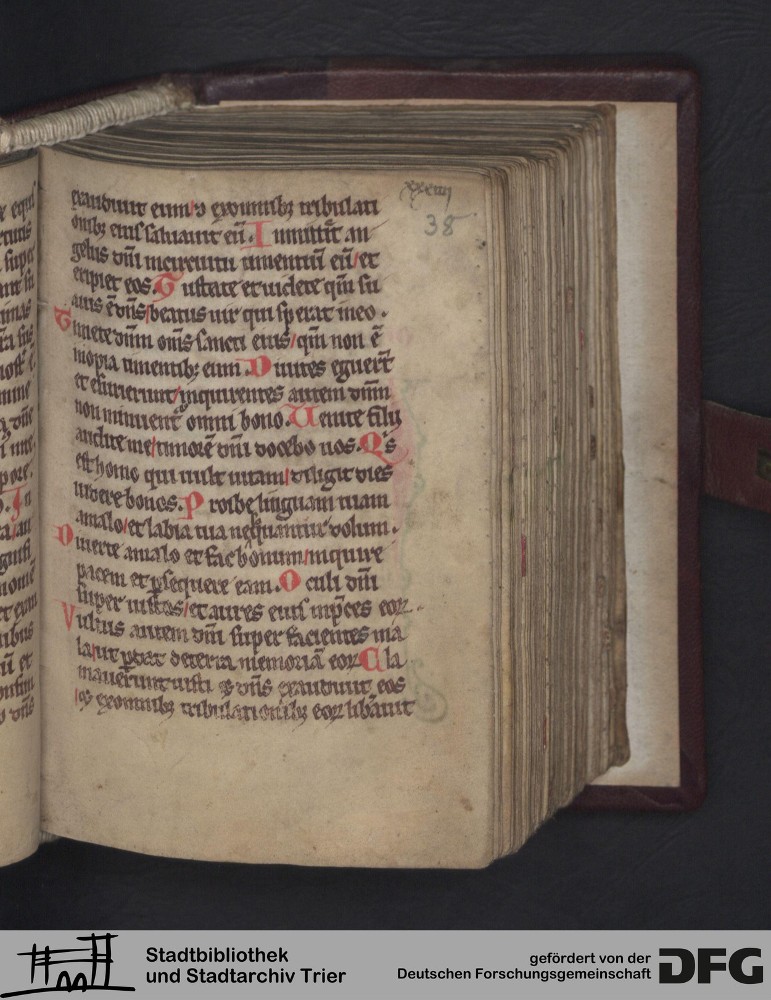 xxxiiij
38
exaudiuit eum / ⁊ exomnibꝫ tribulati
onibꝫ eius saluauit eū. Inmittit an
gelus dn̄i incircuitu timentiū eū / et
eripiet eos. Gustate et uidete qm̄ su
auis ē dn̄s / beatus uir qui sperat in eo.
Timete dn̄m om̄s sancti eius / qm̄ non ē
inopia timentibꝫ eum. Diuites eguer̄t
et esurierunt / inquirentes autem dn̄m
non minuent᷑ omni bono. Uenite filij
audite me / timorē dn̄i docebo uos. Qͥs
est homo qui uult uitam / diligit dies
uidere bonos. Prohibe linguam tuam
amalo / et labia tua ne loquantur dolum.
Diuerte amalo et fac bonum / inquire
pacem et ꝑsequere eam. Oculi dn̄i
super iustos / et aures eius inp̄ces eoꝝ.
Vultus autem dn̄i super facientes ma
la / ut ꝑdat de terra memoriā eoꝝ. Cla
mauerunt iusti ⁊ dn̄s exaudiuit eos
/ ⁊ exomnibꝫ tribulationibꝫ eoꝝ lib̄auit
Stadtbibliothek
und Stadtarchiv Trier
gefördert von der
Deutschen Forschungsgemeinschaft
DFG